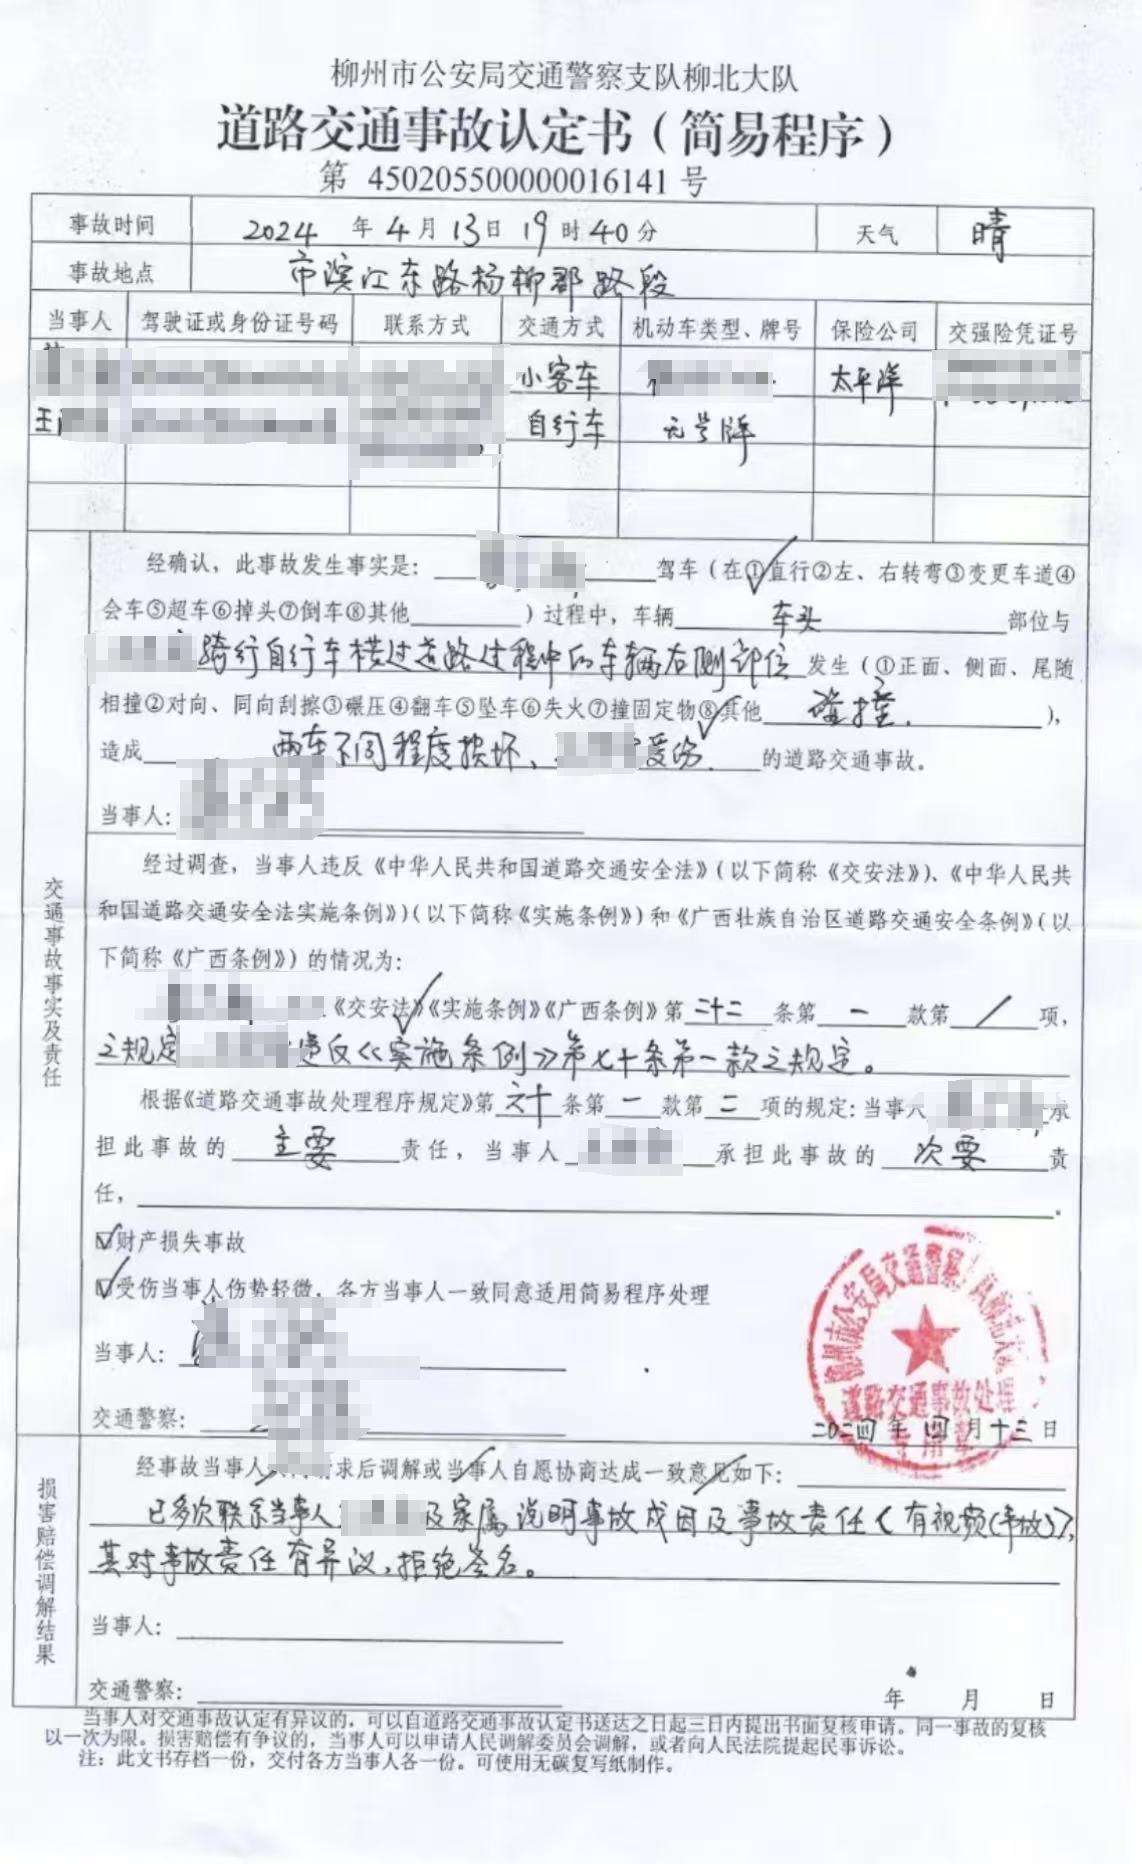 柳州市公安局交通警察支队柳北大队
道路交通事故认定书（简易程序）
第 450205500000016141 号
事故时间 2024 年 4 月 13 日 19 时 40 分 天气 晴
事故地点 市滨江东路杨柳郡路段
当事人 驾驶证或身份证号码 联系方式 交通方式 机动车类型、牌号 保险公司 交强险凭证号
小客车 太平洋
王 自行车 无号牌
经确认，此事故发生事实是： 驾车（在①直行②左、右转弯③变更车道④
会车⑤超车⑥掉头⑦倒车⑧其他 ）过程中，车辆 车头 部位与
骑行自行车横过道路过程中的车辆右侧部位 发生（①正面、侧面、尾随
相撞②对向、同向刮擦③碾压④翻车⑤坠车⑥失火⑦撞固定物⑧其他 碰撞. ），
造成 两车不同程度损坏、 受伤. 的道路交通事故。
当事人：
交通事故事实及责任
经过调查，当事人违反《中华人民共和国道路交通安全法》（以下简称《交安法》）、《中华人民共
和国道路交通安全法实施条例》）（以下简称《实施条例》）和《广西壮族自治区道路交通安全条例》（以
下简称《广西条例》）的情况为：
《交安法》《实施条例》《广西条例》第 二十二 条第 一 款第 / 项，
之规定 违反《实施条例》第七十条第一款之规定。
根据《道路交通事故处理程序规定》第 六十 条第 一 款第 二 项的规定：当事人 承
担此事故的 主要 责任，当事人 承担此事故的 次要 责
任， 。
☑财产损失事故
☑受伤当事人伤势轻微，各方当事人一致同意适用简易程序处理
当事人：
交通警察：
柳州市公安局交通警察支队柳北大队
道路交通事故处理
专用章
二〇二四 年 四 月 十三 日
损害赔偿调解结果
经事故当事人 请求后调解或当事人自愿协商达成一致意见如下：
已多次联系当事人 及家属，说明事故成因及事故责任（有视频（事故）），
其对事故责任有异议，拒绝签名。
当事人：
交通警察： 年 月 日
当事人对交通事故认定有异议的，可以自道路交通事故认定书送达之日起三日内提出书面复核申请。同一事故的复核
以一次为限。损害赔偿有争议的，当事人可以申请人民调解委员会调解，或者向人民法院提起民事诉讼。
注：此文书存档一份，交付各方当事人各一份。可使用无碳复写纸制作。